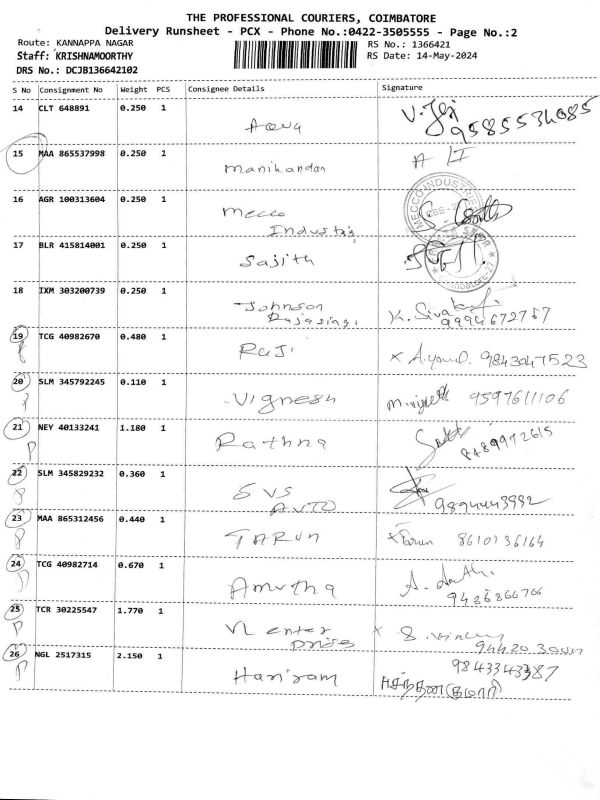 THE PROFESSIONAL COURIERS, COIMBATORE
Delivery Runsheet - PCX - Phone No.:0422-3505555 - Page No.:2
Route: KANNAPPA NAGAR RS No.: 1366421
Staff: KRISHNAMOORTHY RS Date: 14-May-2024
DRS No.: DCJB136642102
S No Consignment No Weight PCS Consignee Details Signature
14 CLT 648891 0.250 1
Aqua 9585534085
15 MAA 865537998 0.250 1
Manikandan
16 AGR 100313604 0.250 1
Mecco
MECCO INDUSTRIES
17 BLR 415814001 0.250 1
Sajith
18 IXM 303200739 0.250 1
Johnson
Rajasingi K. Siva 9994672757
19 TCG 40982670 0.480 1
Raji 9843047523
20 SLM 345792245 0.110 1
Vignesh 9597611106
21 NEY 40133241 1.180 1
Rathna 8489972615
22 SLM 345829232 0.360 1
SVS
AUTO 9894443992
23 MAA 865312456 0.440 1
TARUN Tarun 8610136164
24 TCG 40982714 0.670 1
Amutha
25 TCR 30225547 1.770 1
VL enter
prise
26 NGL 2517315 2.150 1
Hariram 9843343387